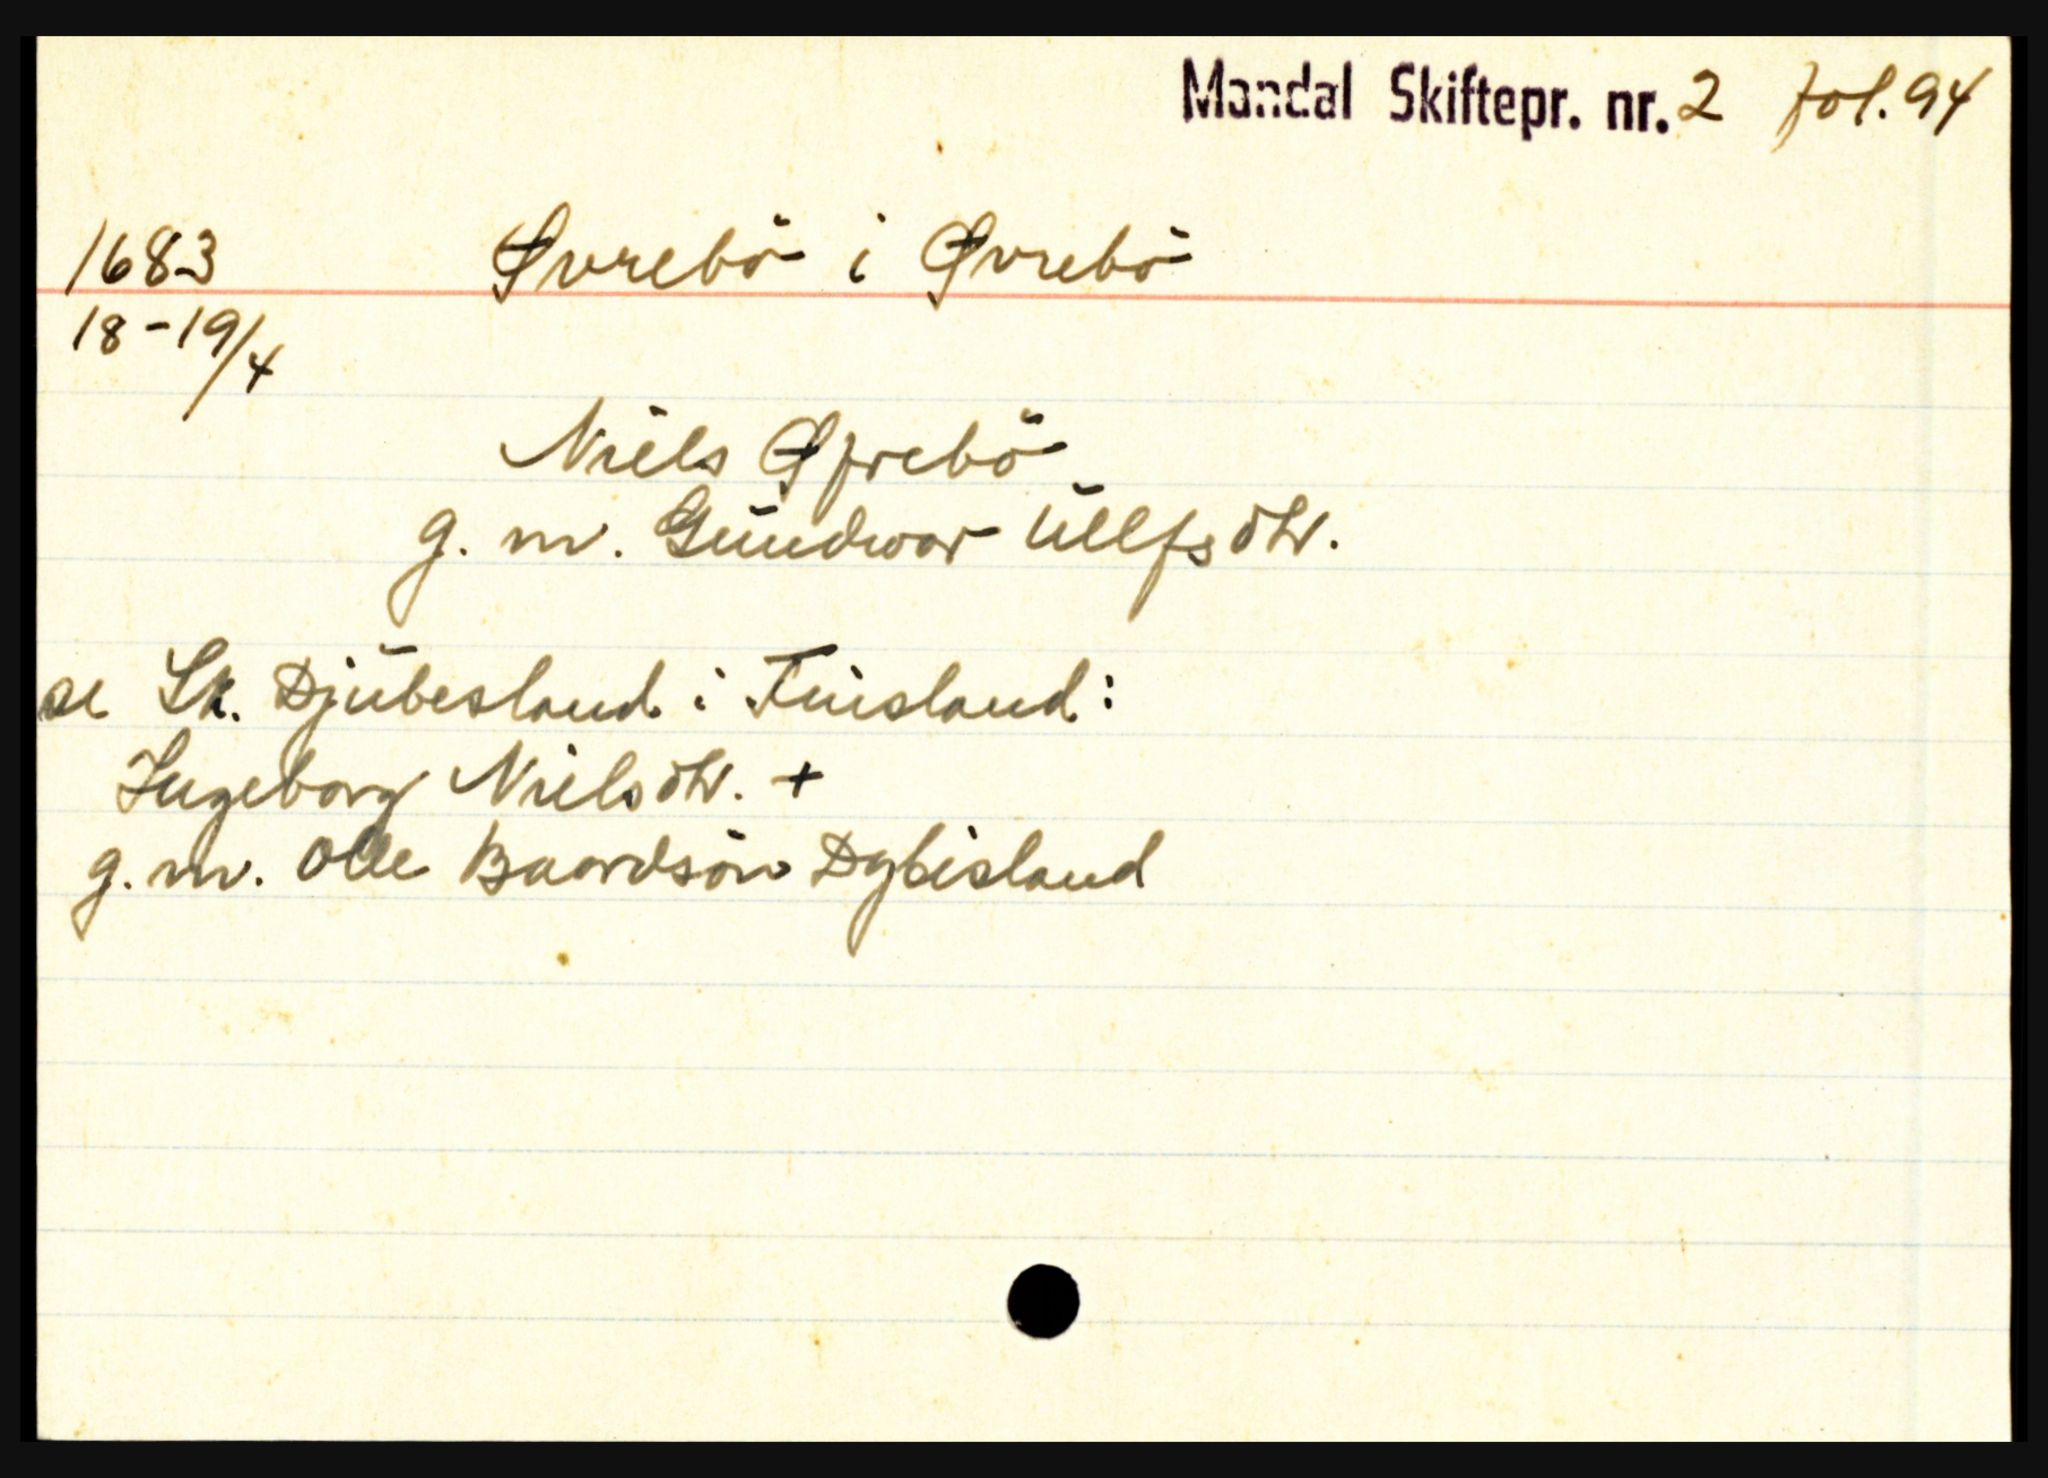 Mandal Skiftepr. nr. 2 fol. 94
1683 Øvrebö i Øvrebö
18-19/4
Niels Øfrebö
g. m. Gundwor Ullfsdtr.
se Sk. Djubesland i Finsland:
Ingeborg Nielsdtr. +
g. m. Olle Baardsön Dybisland